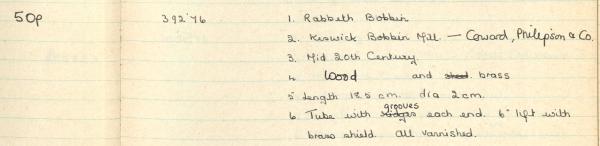 50p 392'76 1. Rabbeth Bobbin
2. Keswick Bobbin Mill — Coward, Philipson & Co.
3. Mid 20th Century
4. Wood and steel. brass
5" Length 18.5 cm. dia 2cm.
grooves
6. Tube with ridges each end. 6" lift with
brass shield. All varnished.